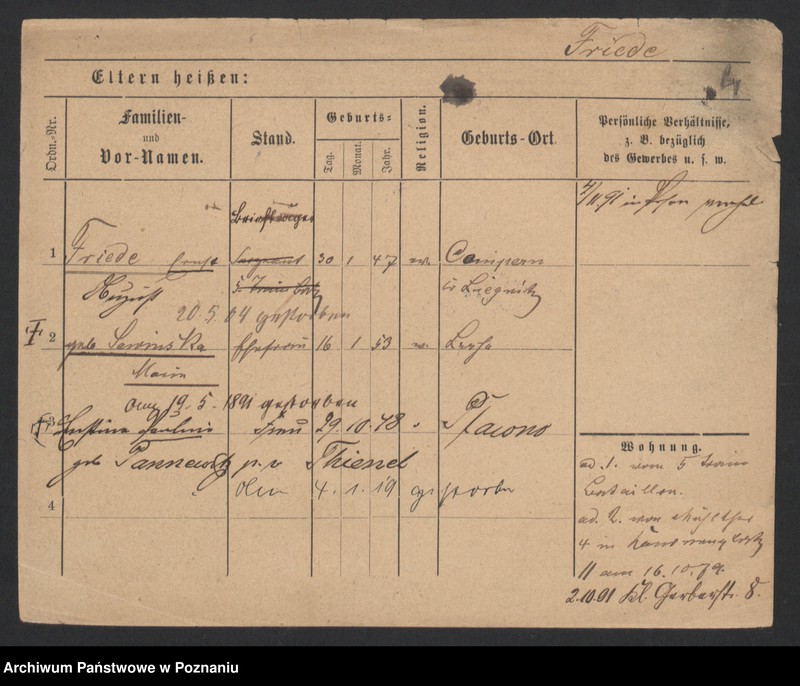 Friede
Eltern heißen:
Ordn.-Nr.
Familien-
und
Vor-Namen.
Stand.
Geburts-
Tag.
Monat.
Jahr.
Religion.
Geburts-Ort.
Persönliche Verhältnisse,
z. B. bezüglich
des Gewerbes u. s. w.
91 in Posen
Briefträger
1 Friede Ernst Sergeant 30 1 47 ev. Campern
August 5. Train Batl. Liegnitz
20. 5. 04 gestorben
2 geb Ehefrau 16 1 53
Marie
am 19. 5. 1891 gestorben
3 Pauline Frau 29. 10. 48
geb Pannewitz Thienel
4. 1. 19 gestorben
4
Wohnung.
ad. 1. vom 5 Train
Bataillon.
ad. 2. von Mühlthor
4 in
11 am 16. 10. 79.
2.10.91 Kl. Gerberstr. 8.
Archiwum Państwowe w Poznaniu